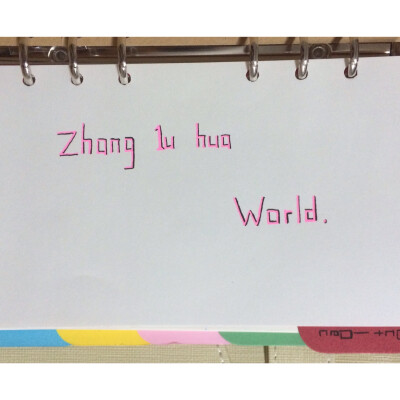 Zhang lu hua
World.